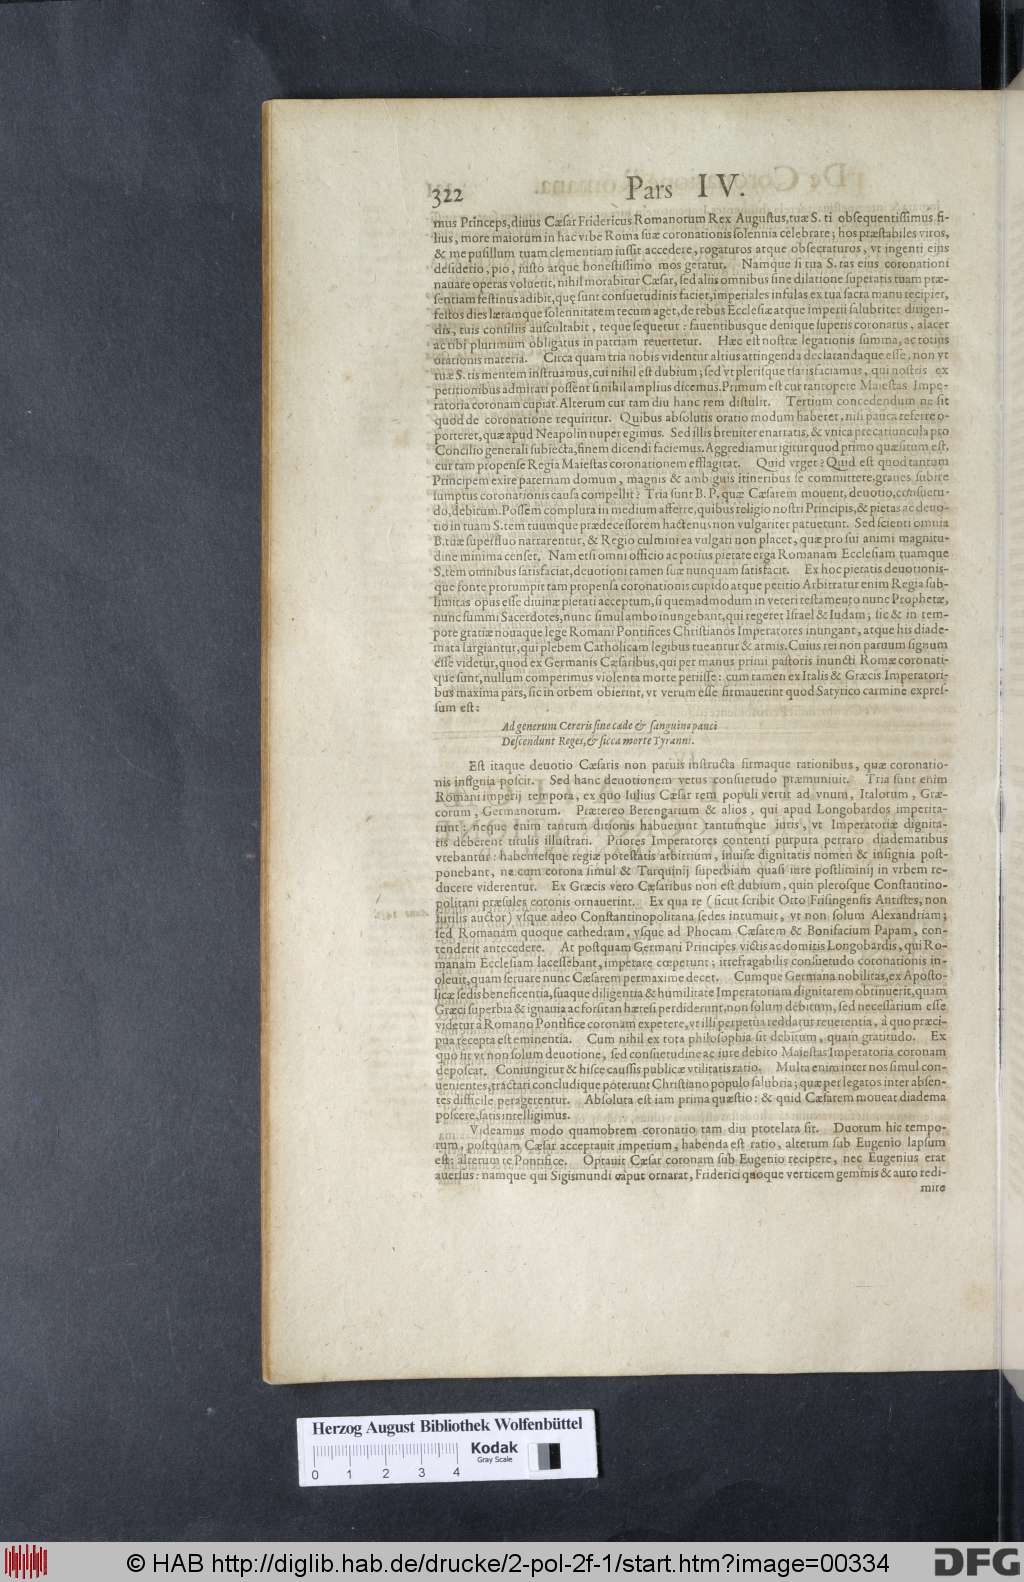 322 Pars IV.
mus Princeps, diuus Cæsar Fridericus Romanorum Rex Augustus, tuæ S. ti obsequentissimus fi-
lius, more maiorum in hac vrbe Roma suæ coronationis solennia celebrare; hos præstabiles viros,
& me pusillum tuam clementiam iussit accedere, rogaturos atque obsecraturos, vt ingenti eius
desiderio, pio, iusto atque honestissimo mos geratur. Namque si tua S. tas eius coronationi
nauare operas voluerit, nihil morabitur Cæsar, sed aliis omnibus sine dilatione superatis tuam præ-
sentiam festinus adibit, quę sunt consuetudinis faciet, imperiales infulas ex tua sacra manu recipiet,
festos dies lætamque solennitatem tecum aget, de rebus Ecclesiæ atque imperii salubriter dirigen-
dis, tuis consiliis auscultabit, teque sequetur: fauentibusque denique superis coronatus, alacer
ac tibi plurimum obligatus in patriam reuertetur. Hæc est nostræ legationis summa, ac totius
orationis materia. Circa quam tria nobis videntur altius attingenda declarandaque esse, non vt
tuæ S. tis mentem instruamus, cui nihil est dubium; sed vt plerisque satisfaciamus, qui nostris ex
petitionibus admirari possent si nihil amplius dicemus. Primum est cur tantopere Maiestas Impe-
ratoria coronam cupiat. Alterum cur tam diu hanc rem distulit. Tertium concedendum ne sit
quod de coronatione requiritur. Quibus absolutis oratio modum haberet, nisi pauca referre o-
porteret, quæ apud Neapolin nuper egimus. Sed illis breuiter enarratis, & vnica precatiuncula pro
Concilio generali subiecta, finem dicendi faciemus. Aggrediamur igitur quod primo quæsitum est,
cur tam propense Regia Maiestas coronationem efflagitat. Quid vrget? Quid est quod tantum
Principem exire paternam domum, magnis & ambiguis itineribus se committere, graues subire
sumptus coronationis causa compellit? Tria sunt B. P. quæ Cæsarem mouent, deuotio, consuetu-
do, debitum. Possem complura in medium afferre, quibus religio nostri Principis, & pietas ac deuo-
tio in tuam S. tem tuumque prædecessorem hactenus non vulgariter patuerunt. Sed scienti omnia
B. tuæ superfluo narrarentur, & Regio culmini ea vulgari non placet, quæ pro sui animi magnitu-
dine minima censet. Nam etsi omni officio ac potius pietate erga Romanam Ecclesiam tuamque
S. tem omnibus satisfaciat, deuotioni tamen suæ nunquam satisfacit. Ex hoc pietatis deuotionis-
que fonte prorumpit tam propensa coronationis cupido atque petitio Arbitratur enim Regia sub-
limitas opus esse diuinæ pietati acceptum, si quemadmodum in veteri testamento nunc Prophetæ,
nunc summi Sacerdotes, nunc simul ambo inungebant, qui regeret Israel & Iudam; sic & in tem-
pore gratiæ nouaque lege Romani Pontifices Christianos Imperatores inungant, atque his diade-
mata largiantur, qui plebem Catholicam legibus tueantur & armis. Cuius rei non paruum signum
esse videtur, quod ex Germanis Cæsaribus, qui per manus primi pastoris inuncti Romæ coronati-
que sunt, nullum comperimus violenta morte periisse: cum tamen ex Italis & Græcis Imperatori-
bus maxima pars, sic in orbem obierint, vt verum esse firmauerint quod Satyrico carmine expres-
sum est:
Ad generum Cereris sine cæde & sanguine pauci
Descendunt Reges, & sicca morte Tyranni.
Est itaque deuotio Cæsaris non paruis instructa firmaque rationibus, quæ coronatio-
nis insignia poscit. Sed hanc deuotionem vetus consuetudo præmuniuit. Tria sunt enim
Romani imperij tempora, ex quo Iulius Cæsar rem populi vertit ad vnum, Italorum, Græ-
corum, Germanorum. Prætereo Berengarium & alios, qui apud Longobardos imperita-
runt: neque enim tantum ditionis habuerunt tantumque iuris, vt Imperatoriæ dignita-
tis deberent titulis illustrari. Priores Imperatores contenti purpura perraro diadematibus
vtebantur: habentesque regiæ potestatis arbitrium, inuisæ dignitatis nomen & insignia post-
ponebant, ne cum corona simul & Tarquinij superbiam quasi iure postliminij in vrbem re-
ducere viderentur. Ex Græcis vero Cæsaribus non est dubium, quin plerosque Constantino-
politani præsules coronis ornauerint. Ex qua re (sicut scribit Otto Frisingensis Antistes, non
futilis auctor) vsque adeo Constantinopolitana sedes intumuit, vt non solum Alexandriam;
sed Romanam quoque cathedram, vsque ad Phocam Cæsarem & Bonifacium Papam, con-
tenderit antecedere. At postquam Germani Principes victis ac domitis Longobardis, qui Ro-
manam Ecclesiam lacessebant, imperare cœperunt; irrefragabilis consuetudo coronationis in-
oleuit, quam seruare nunc Cæsarem permaxime decet. Cumque Germana nobilitas, ex Aposto-
licæ sedis beneficentia, suaque diligentia & humilitate Imperatoriam dignitatem obtinuerit, quam
Græci superbia & ignauia ac forsitan hæresi perdiderunt, non solum debitum, sed necessarium esse
videtur a Romano Pontifice coronam expetere, vt illi perpetua reddatur reuerentia, à quo præci-
pua recepta est eminentia. Cum nihil ex tota philosophia sit debitum, quam gratitudo. Ex
quo fit vt non solum deuotione, sed consuetudine ac iure debito Maiestas Imperatoria coronam
deposcat. Coniungitur & hisce caussis publicæ vtilitatis ratio. Multa enim inter nos simul con-
uenientes, tractari concludique poterunt Christiano populo salubria; quæ per legatos inter absen-
tes difficile peragerentur. Absoluta est iam prima quæstio: & quid Cæsarem moueat diadema
poscere, satis intelligimus.
Videamus modo quamobrem coronatio tam diu protelata sit. Duorum hic tempo-
rum, postquam Cæsar acceptauit imperium, habenda est ratio, alterum sub Eugenio lapsum
est: alterum te Pontifice. Optauit Cæsar coronam sub Eugenio recipere, nec Eugenius erat
auersus: namque qui Sigismundi caput ornarat, Friderici quoque verticem gemmis & auro redi-
mire
Herzog August Bibliothek Wolfenbüttel
0 1 2 3 4
Kodak
Gray Scale
© HAB http://diglib.hab.de/drucke/2-pol-2f-1/start.htm?image=00334
DFG